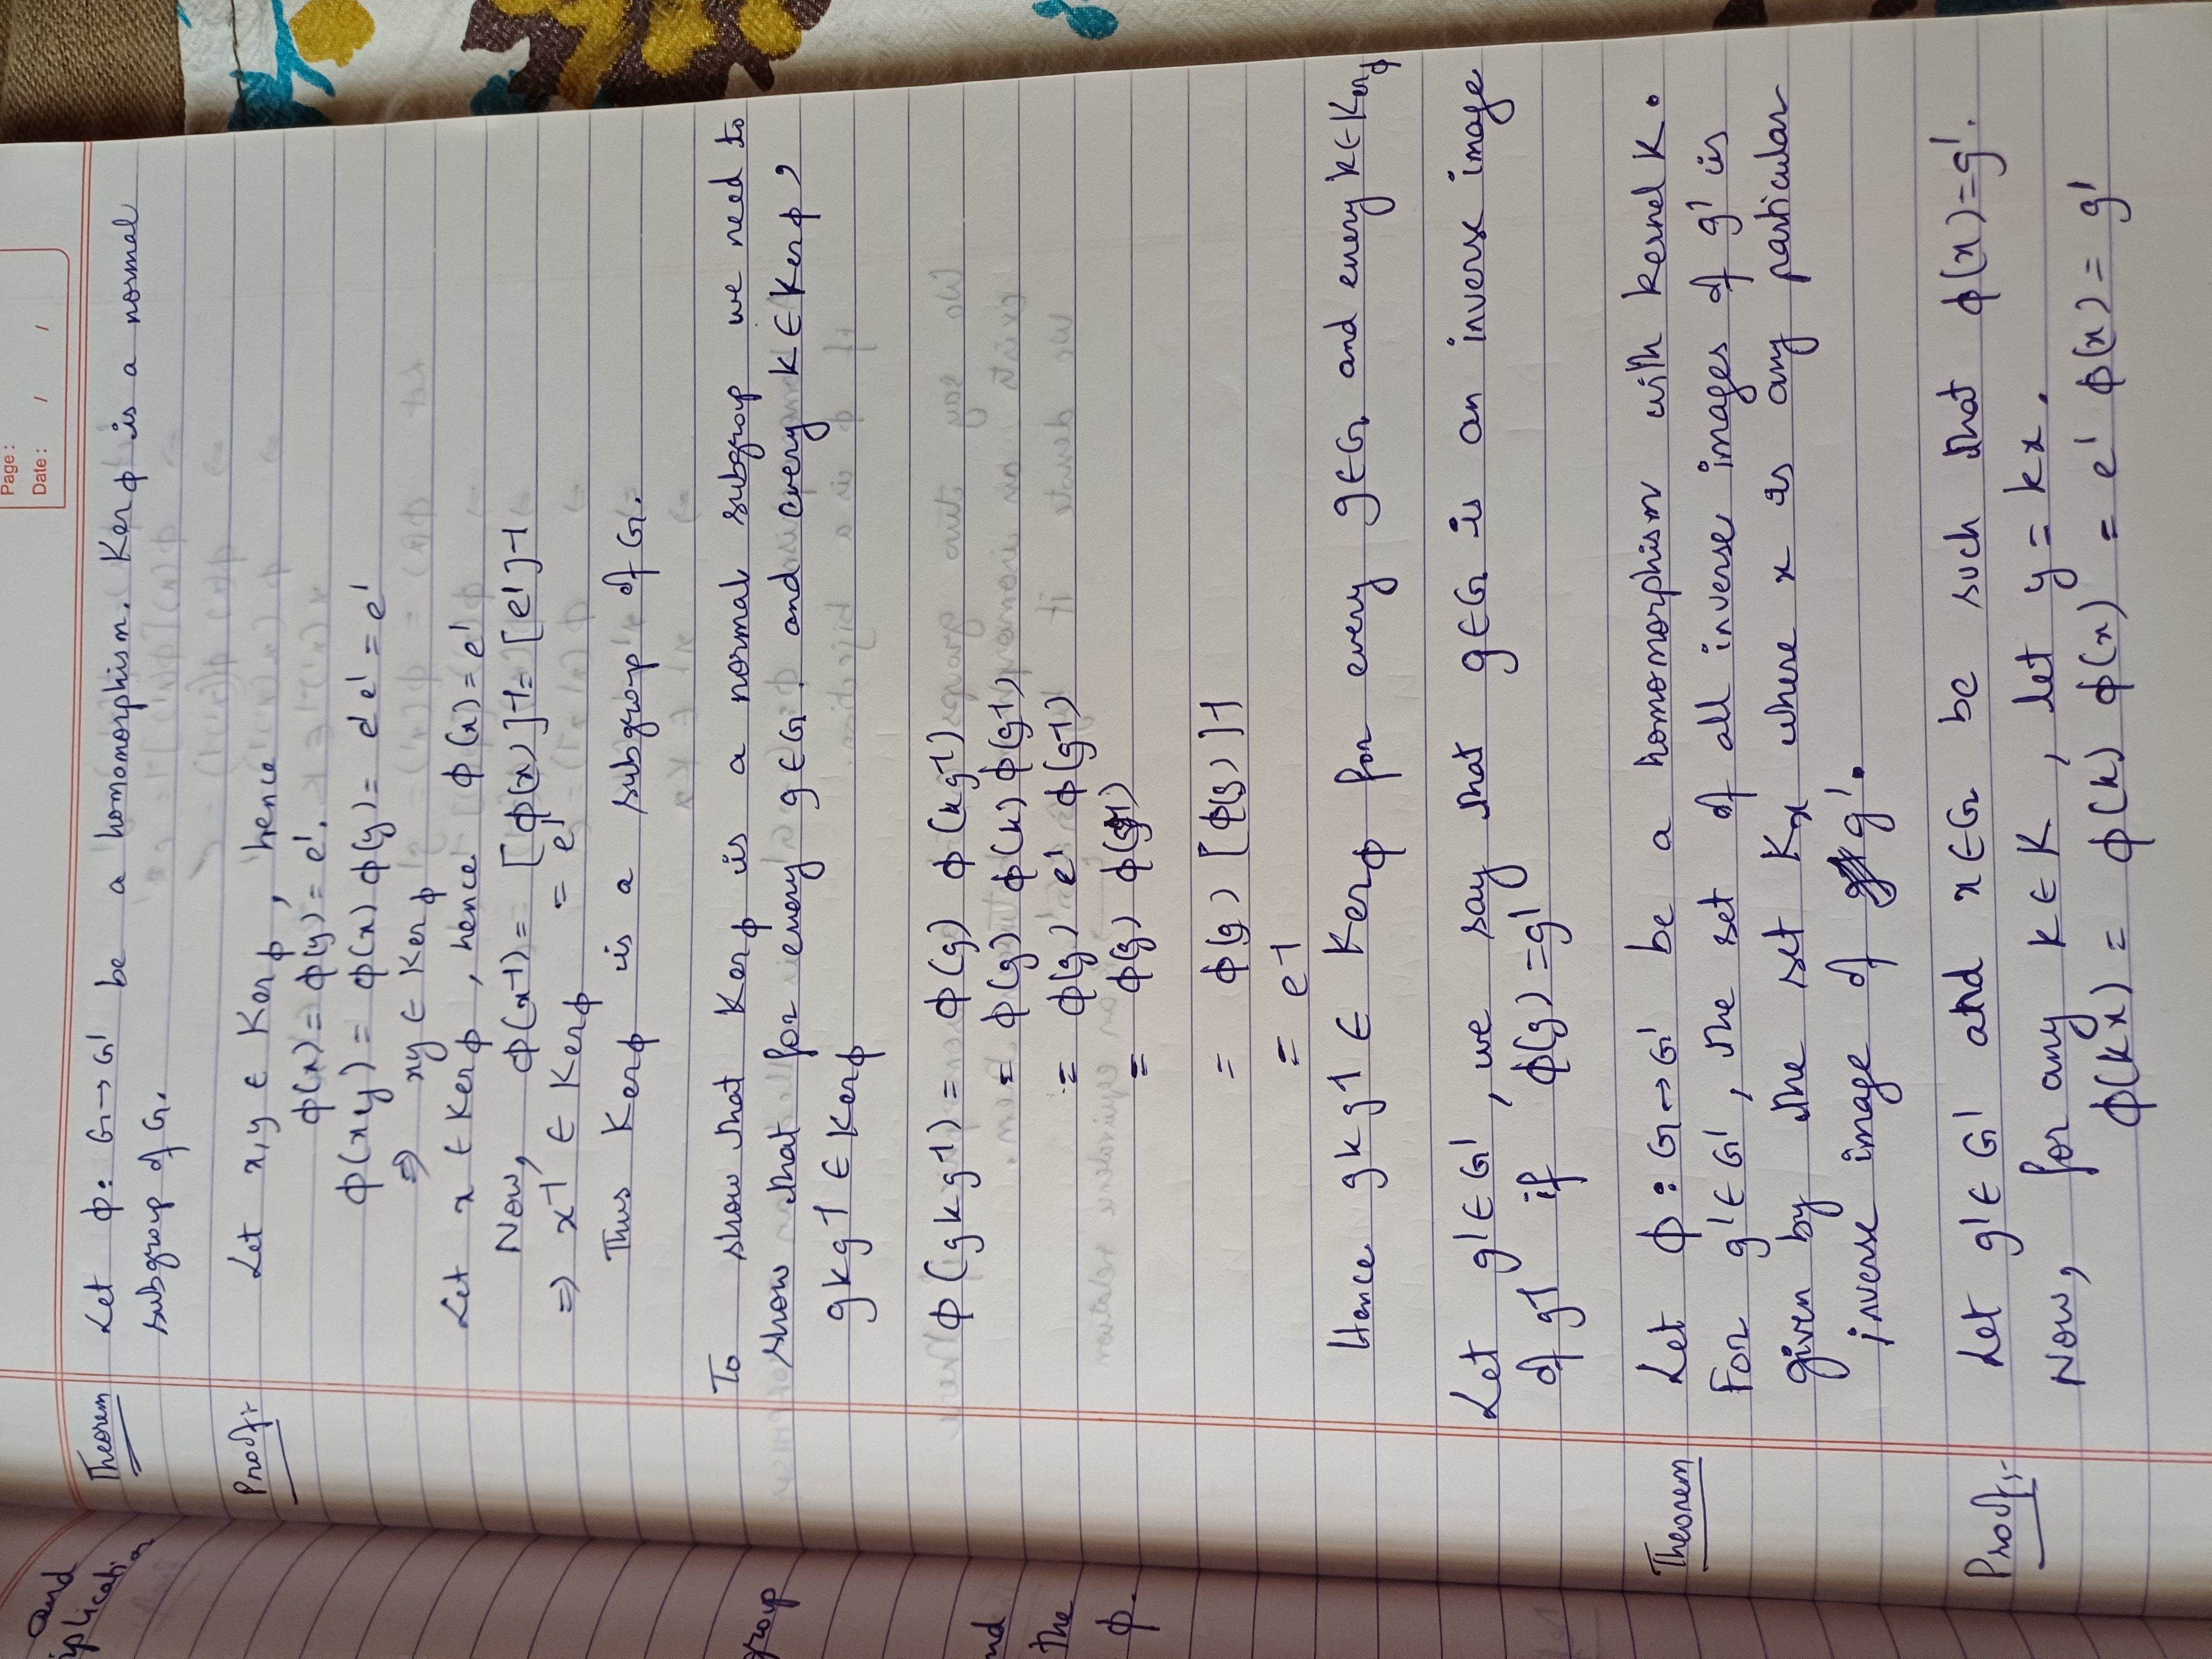 Page:
Date: / /
Theorem Let ϕ: G→G' be a homomorphism. Ker ϕ is a normal
subgroup of G.
Proof:- Let x,y ∈ Kerϕ, hence
ϕ(x)=ϕ(y)=e'.
ϕ(xy)= ϕ(x)ϕ(y)= e'e'=e'
⇒ xy ∈ Kerϕ
Let x ∈ Kerϕ, hence ϕ(x)=e'
Now, ϕ(x-1)= [ϕ(x)]-1= [e']-1
= e'
⇒ x-1 ∈ Kerϕ
Thus Kerϕ is a subgroup of G.
To show that Kerϕ is a normal subgroup we need to
show that for every g∈G and every k∈Kerϕ,
gkg-1 ∈ Kerϕ
ϕ(gkg-1) = ϕ(g) ϕ(kg-1)
= ϕ(g) ϕ(k) ϕ(g-1)
= ϕ(g) e' ϕ(g-1)
= ϕ(g) ϕ(g-1)
= ϕ(g) [ϕ(g)]-1
= e-1
Hence gkg-1 ∈ Kerϕ for every g∈G and every k∈Kerϕ
Let g'∈G', we say that g∈G is an inverse image
of g1 if ϕ(g)=g'
Theorem Let ϕ: G→G' be a homomorphism with kernel K.
For g'∈G', the set of all inverse images of g' is
given by the set Kx where x is any particular
inverse image of g'.
Proof:- Let g'∈G' and x∈G be such that ϕ(x)=g'.
Now, for any k∈K, let y=kx.
ϕ(kx) = ϕ(k) ϕ(x) = e' ϕ(x) = g'
and
group
nd
the
ϕ.